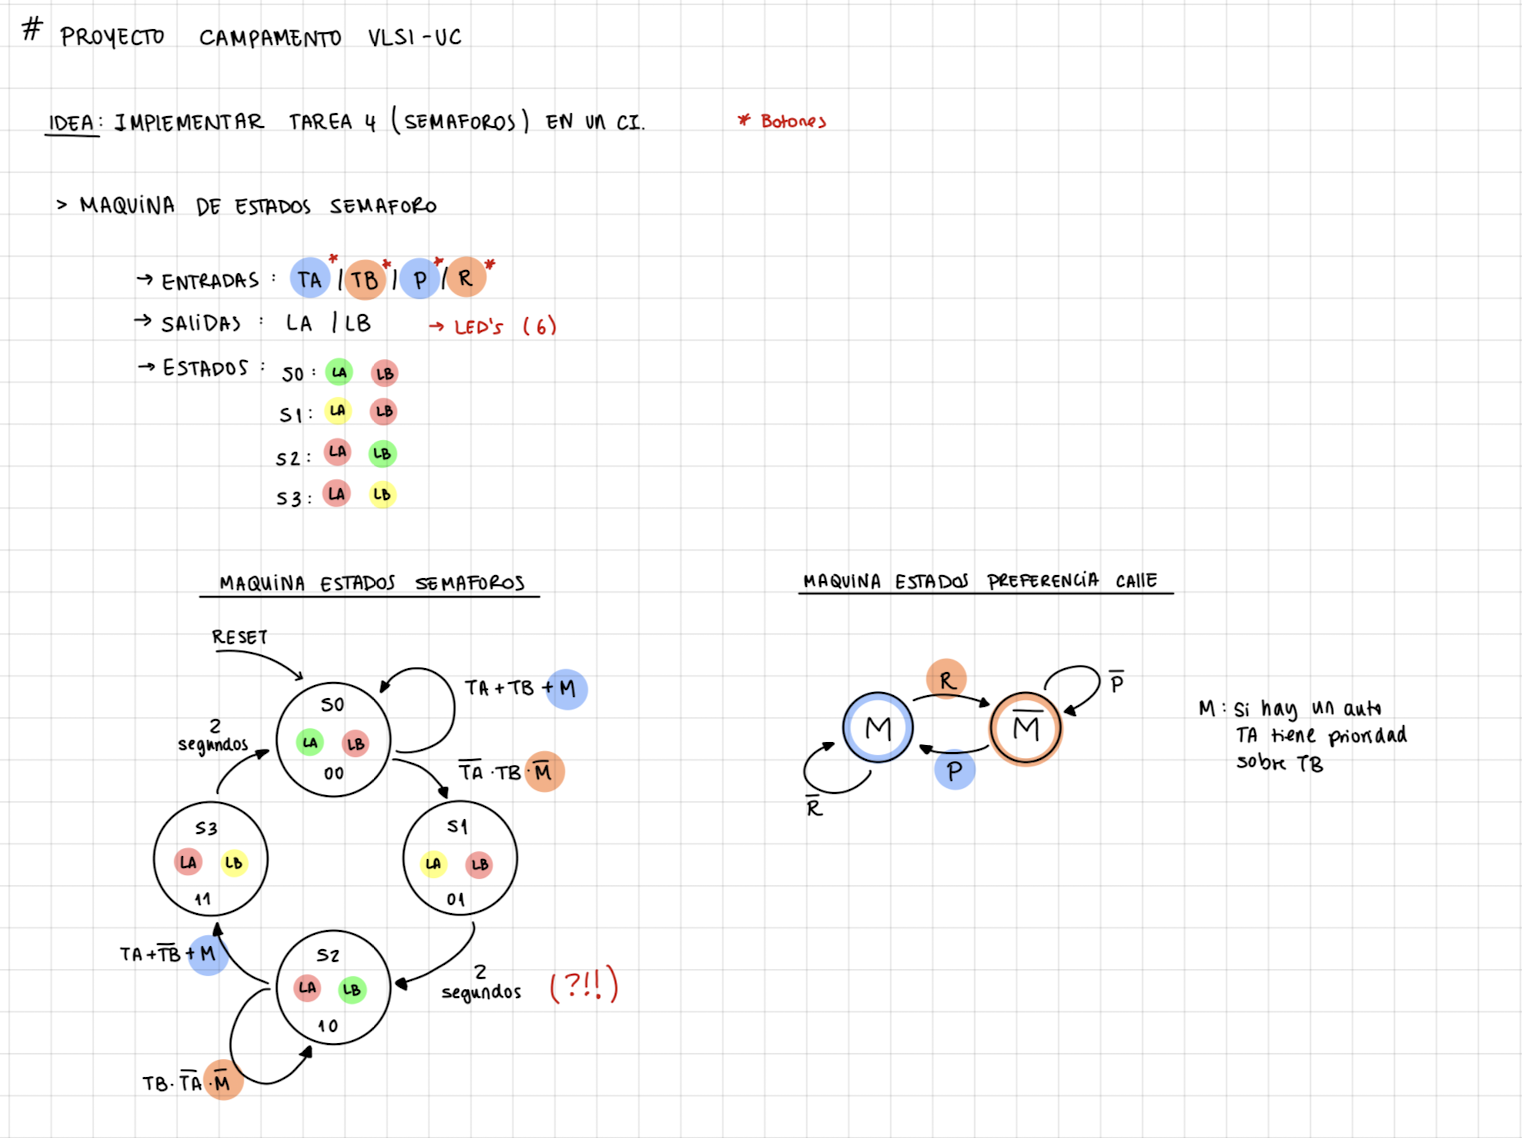 # PROYECTO CAMPAMENTO VLSI-UC
IDEA: IMPLEMENTAR TAREA 4 (SEMAFOROS) EN UN CI.
* Botones
> MAQUINA DE ESTADOS SEMAFORO
→ ENTRADAS : TA* / TB* / P* / R*
→ SALIDAS : LA / LB → LED'S (6)
→ ESTADOS : S0 : LA LB
S1 : LA LB
S2 : LA LB
S3 : LA LB
MAQUINA ESTADOS SEMAFOROS
RESET
S0
LA LB
00
TA + TB + M
T̅A̅ · TB · M̅
S1
LA LB
01
2
segundos (?!!)
S2
LA LB
10
TB · T̅A̅ · M̅
TA + T̅B̅ + M
S3
LA LB
11
2
segundos
MAQUINA ESTADOS PREFERENCIA CALLE
M
R
M̅
P̅
P
R̅
M : Si hay un auto
TA tiene prioridad
sobre TB